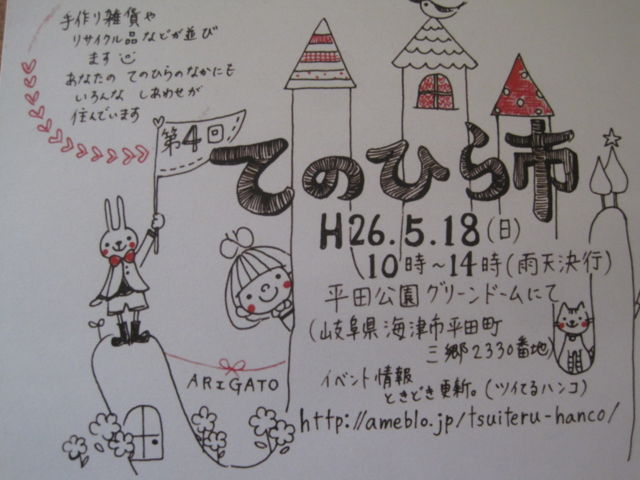 手作り雑貨や
リサイクル品などが並び
ます
あなたの てのひらのなかにも
いろんな しあわせが
住んでいます
第4回
てのひら市
H26.5.18(日)
10時~14時(雨天決行)
平田公園グリーンドームにて
(岐阜県海津市平田町
三郷2330番地)
ARIGATO
イベント情報
ときどき更新。(ツイてるハンコ)
http://ameblo.jp/tsuiteru-hanco/